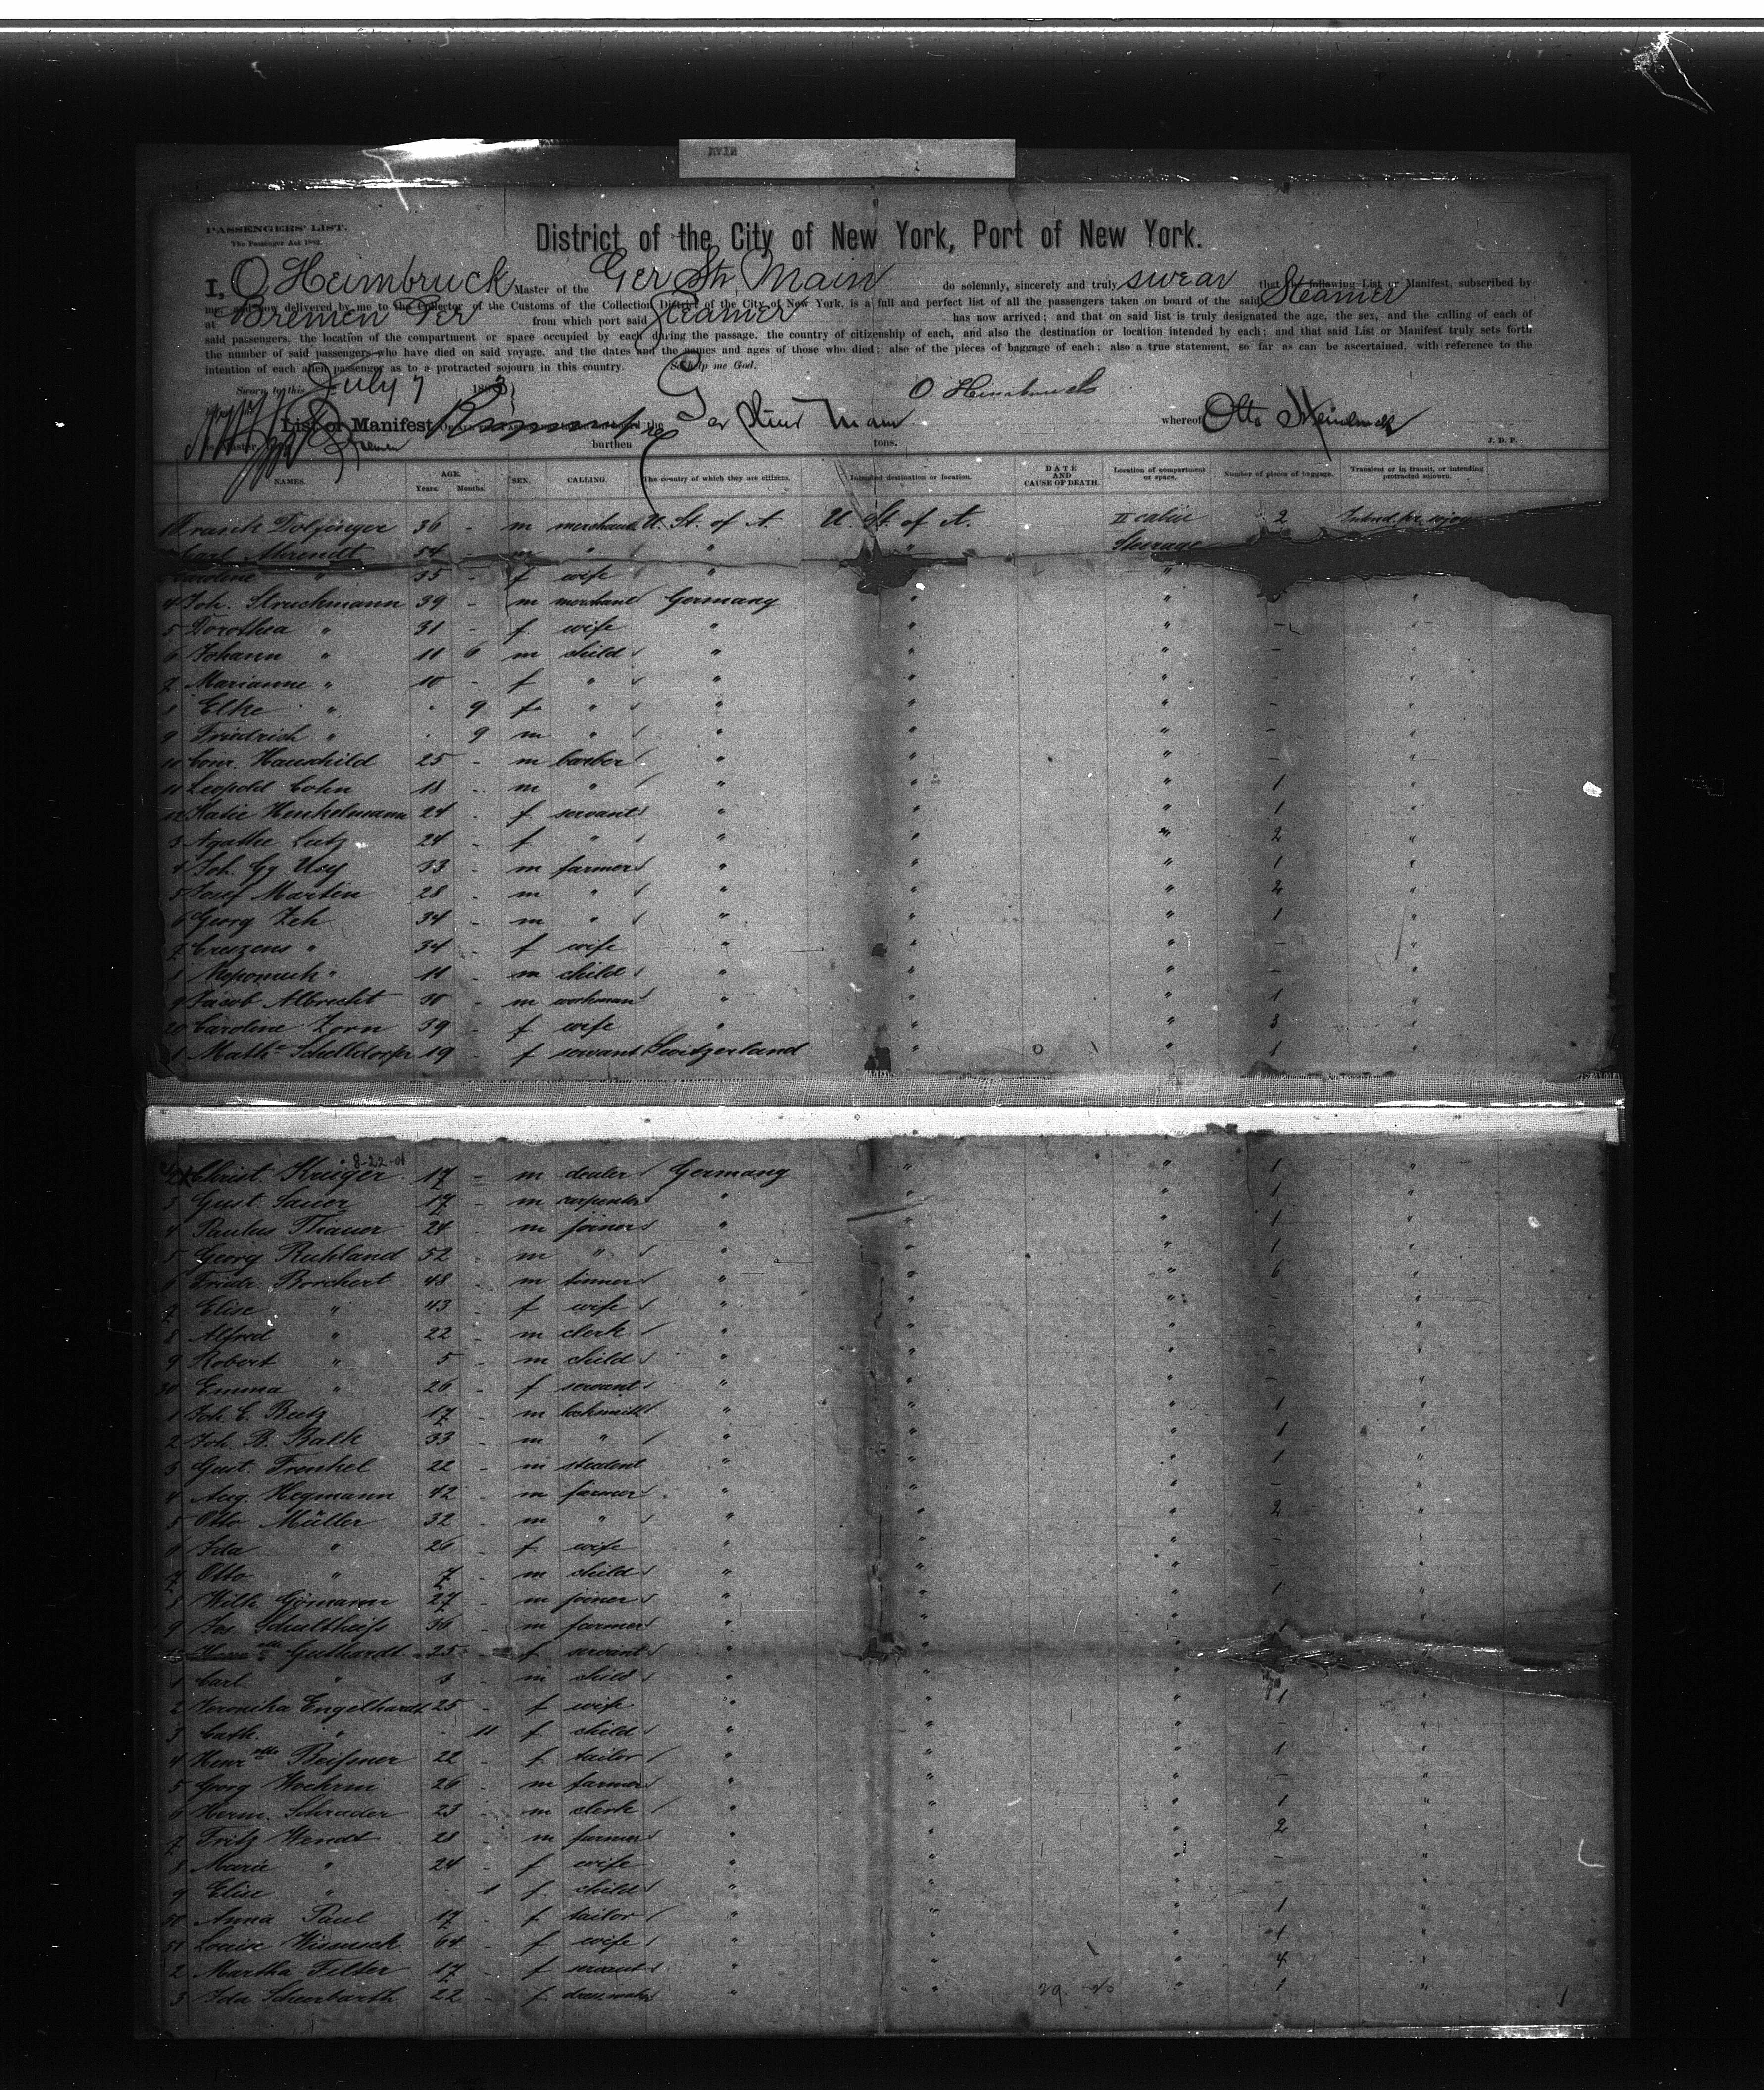 PASSENGERS' LIST.
The Passenger Act 1882.
District of the City of New York, Port of New York.
I, O Heimbruck Master of the Ger Str Main do solemnly, sincerely and truly swear that the following List or Manifest, subscribed by
me, and now delivered by me to the Collector of the Customs of the Collection District of the City of New York, is a full and perfect list of all the passengers taken on board of the said Steamer
at Bremen Ger from which port said Steamer has now arrived; and that on said list is truly designated the age, the sex, and the calling of each of
said passengers, the location of the compartment or space occupied by each during the passage, the country of citizenship of each, and also the destination or location intended by each; and that said List or Manifest truly sets forth
the number of said passengers who have died on said voyage, and the dates and the names and ages of those who died; also of the pieces of baggage of each; also a true statement, so far as can be ascertained, with reference to the
intention of each alien passenger as to a protracted sojourn in this country. So help me God.
Sworn to this July 7 188
O. Heimbruck
List or Manifest the Main whereof Otto Heimbruck
burthen tons. J. D. F.
NAMES. AGE. Years. Months. SEX. CALLING. The country of which they are citizens. Intended destination or location. DATE AND CAUSE OF DEATH. Location of compartment or space. Number of pieces of baggage. Transient or in transit, or intending protracted sojourn.
1 Frank Dolfinger 36 - m merchand U. St. of A. U. St. of A. II cabin 2 Intend. pr. sojou
Carl Ahrendt 54 - m " " " Steerage
Caroline " 35 - f wife " "
4 Joh. Struckmann 39 - m merchand Germany " " "
5 Dorothea " 31 - f wife " " " - "
6 Johann " 11 6 m child " " " - "
7 Marianne " 10 - f " " " " - "
8 Elke " . 9 f " " " " - "
9 Friedrich " . 9 m " " " " - "
10 Conr. Hauschild 25 - m barber " " " - "
11 Leopold Cohn 18 - m " " " " 1 "
12 Katie Henkelmann 24 - f servant " " " 1 "
3 Agathe Lutz 24 - f " " " " 2 "
4 Joh. Gg Usy 33 - m farmer " " " 1 "
5 Josef Martin 28 - m " " " " 2 "
6 Georg Zeh 34 - m " " " " 1 "
7 Creszens " 34 - f wife " " " - "
8 Nepomuk " 11 - m child " " " - "
9 Jacob Albrecht 30 - m workman " " " 1 "
20 Caroline Zorn 39 - f wife " " " 3 "
1 Mathe Schelldorfer 19 - f servant Switzerland " " 1 "
8-22-01
Christ. Krüger 17 - m dealer Germany " " 1 "
3 Gust. Sauer 17 - m carpenter " " " 1 "
4 Paulus Thauer 24 - m joiner " " " 1 "
5 Georg Ruhland 52 - m " " " " 1 "
6 Friedr. Borchert 48 - m tinner " " " 6 "
7 Elise " 43 - f wife " " " - "
8 Alfred " 22 - m clerk " " " - "
9 Robert " 5 - m child " " " - "
30 Emma " 26 - f servant " " " - "
1 Joh. C. Beetz 17 - m locksmith " " " 1 "
2 Joh. B. Balk 33 - m " " " " 1 "
3 Gust. Frenkel 22 - m student " " " 1 "
4 Aug. Hegmann 42 - m farmer " " " - "
5 Otto Müller 32 - m " " " " 2 "
6 Ida " 26 - f wife " " " - "
7 Otto " 7 - m child " " " - "
8 Wilh Gömann 27 - m joiner " " " 1 "
9 Jos. Schultheiß 36 - m farmer " " " 1 "
Guthardt 25 - f servant " " "
1 Carl " 3 - m child " " "
2 Veronika Engelhardt 25 - f wife " " " 1 "
3 Cath. " - 11 f child " " " - "
4 Henrette Beißner 22 - f tailor " " " 1 "
5 Georg Woehrm 26 - m farmer " " " - "
6 Herm. Schrader 23 - m clerk " " " 1 "
7 Fritz Wendt 28 - m farmer " " " 2 "
8 Marie " 24 - f wife " " " - "
9 Elise " - 1 f child " " " - "
50 Anna Paul 17 - f tailor " " " 1 "
51 Louise Wissusek 64 - f wife " " " 1 "
2 Martha Filter 17 - f servant " " " 4 "
3 Ida Scheerbarth 22 - f dressmaker " " " 1 "